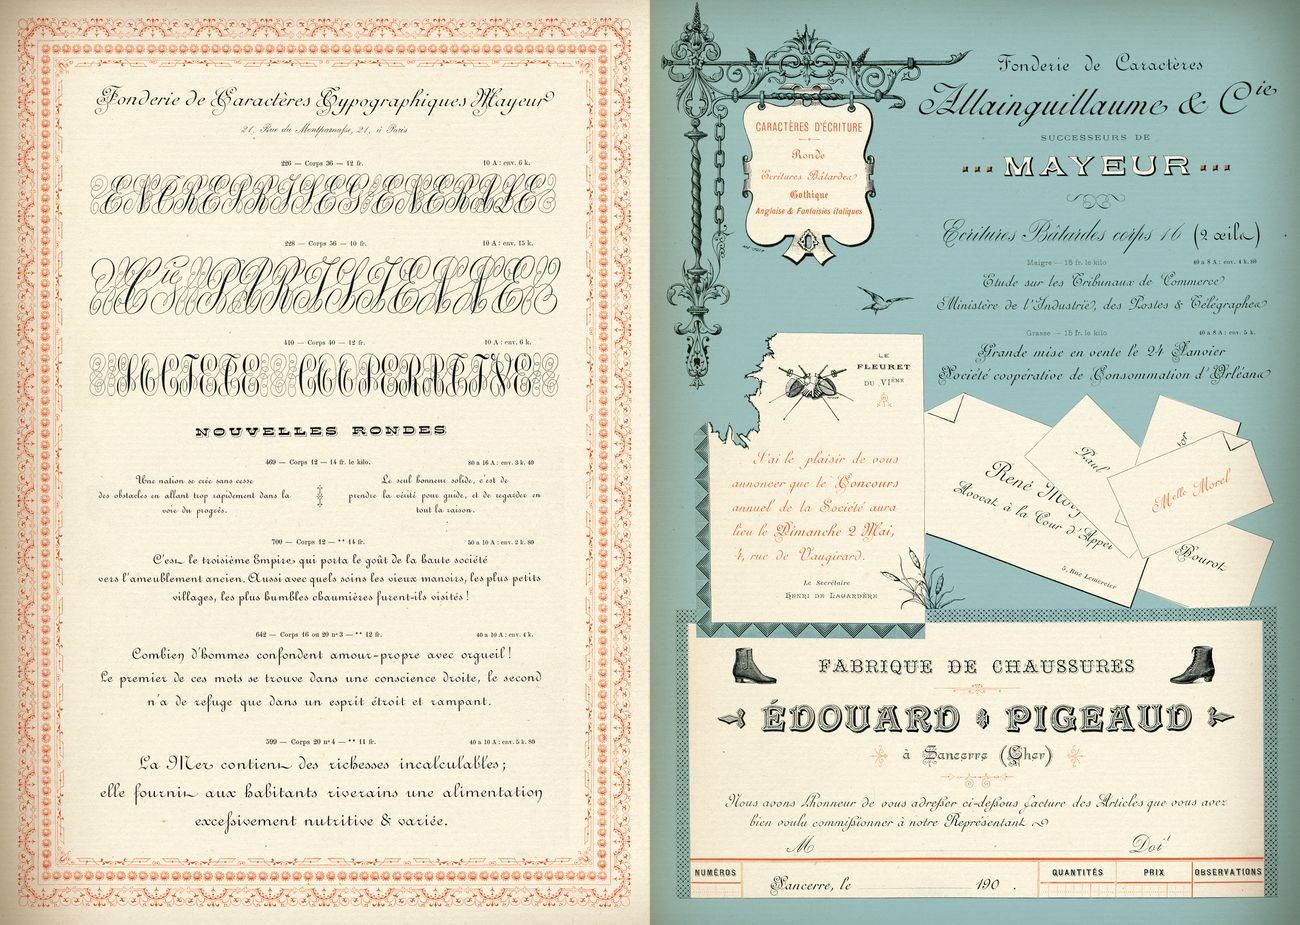 Fonderie de Caractères Typographiques Mayeur
21, Rue du Montparnaſse, 21, à Paris
226 — Corps 36 — 12 fr. 10 A : env. 6 k.
ENTREPRISES GENERALE
228 — Corps 56 — 10 fr. 10 A : env. 15 k.
Cie PARISIENNE
410 — Corps 40 — 12 fr. 10 A : env. 6 k.
SOCIETE COOPERATIVE
NOUVELLES RONDES
469 — Corps 12 — 14 fr. le kilo. 80 a 16 A : env. 3 k. 40
Une nation se crée sans cesse
des obstacles en allant trop rapidement dans la
voie du progrès.
Le seul bonheur solide, c'est de
prendre la vérité pour guide, et de regarder en
tout la raison.
700 — Corps 12 — " 14 fr. 50 a 10 A : env. 2 k. 80
C'est le troisième Empire qui porta le goût de la haute société
vers l'ameublement ancien. Aussi avec quels soins les vieux manoirs, les plus petits
villages, les plus humbles chaumières furent-ils visités !
642 — Corps 16 ou 20 nº 3 — " 12 fr. 40 a 10 A : env. 4 k.
Combien d'hommes confondent amour-propre avec orgueil !
Le premier de ces mots se trouve dans une conscience droite, le second
n'a de refuge que dans un esprit étroit et rampant.
599 — Corps 20 nº 4 — " 11 fr. 40 a 10 A : env. 5 k. 80
La Mer contient des richesses incalculables ;
elle fournit aux habitants riverains une alimentation
exceſsivement nutritive & variée.
CARACTÈRES D'ÉCRITURE
Ronde
Ecritures Bâtardes
Gothique
Anglaise & Fantaisies italiques
Fonderie de Caractères
Allainguillaume & Cie
SUCCESSEURS DE
MAYEUR
Ecritures Bâtardes corps 16 (2 œils)
Maigre — 15 fr. le kilo 40 a 8 A : env. 4 k. 80
Etude sur les Tribunaux de Commerce
Ministère de l'Industrie, des Postes & Télégraphes
Grasse — 15 fr. le kilo 40 a 8 A : env. 5 k.
Grande mise en vente le 24 Janvier
Société coopérative de Consommation d'Orléans
LE
FLEURET
DU VIÈME
J'ai le plaisir de vous
annoncer que le Concours
annuel de la Société aura
lieu le Dimanche 2 Mai,
4, rue de Vaugirard.
Le Secrétaire
HENRI DE LAGARDÈRE
René Morg
Avocat à la Cour d'Appel
5, Rue Lemercier
Paul
Melle Morel
Bourot
FABRIQUE DE CHAUSSURES
ÉDOUARD PIGEAUD
à Sancerre (Cher)
Nous avons l'honneur de vous adreſser ci-deſsous facture des Articles que vous avez
bien voulu commiſsionner à notre Représentant
M Doit
NUMÉROS Sancerre, le 190 . QUANTITÉS PRIX OBSERVATIONS